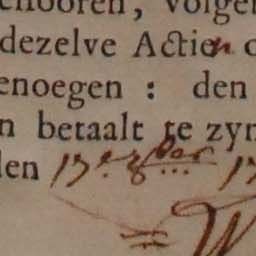 ehooren, volgen
dezelve Actien o
enoegen : den
n betaalt te zyn
len 13.e 8bor 17